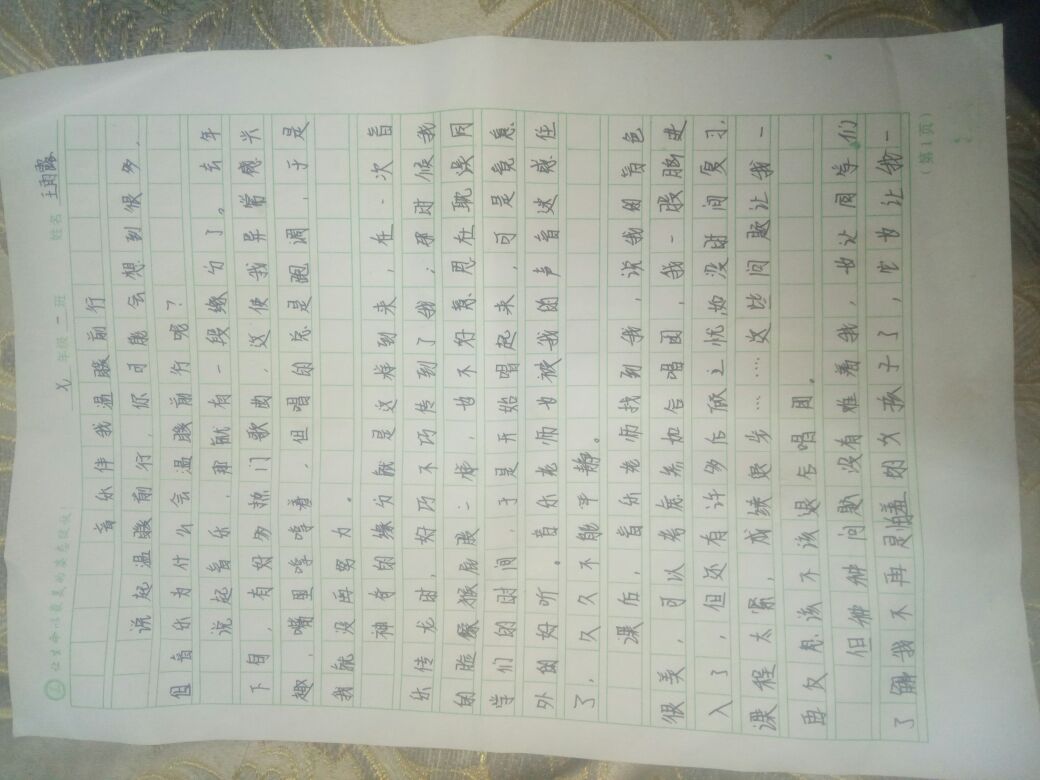 让生命以最美的姿态绽放！
九 年级 一 班 姓名
音乐伴我温暖前行
说起温暖前行，你可能会想到很多，
但音乐为什么会温暖前行呢？
说起音乐，那就有一段缘分了。去年
下旬，有好多热门歌曲，这使我异常感兴
趣，嘴里哼哼着，但唱的总是跑调，于是
我就没再努力。
神奇的缘分就是这样到来，在一次音
乐传龙时，好巧不巧传到了我，那时候我
的脸像猴屁股一样，也不好意思在耽误同
学们的时间，于是开始唱起来，可是竟意
外的好听。音乐老师也被我的声音这感住
了，久久不能平静。
课后，音乐老师找到我，说我的音色
很美，可以考虑参加合唱团，我一股脑进
入了，但还有许多后顾之忧，如没时间复习，
课程太紧，成绩退步……这些问题让我一
再反思该不该退合唱团。
但种种问题没有难着我，也让同学们
了解我不再是的女孩子了，它也让我一
（第1页）